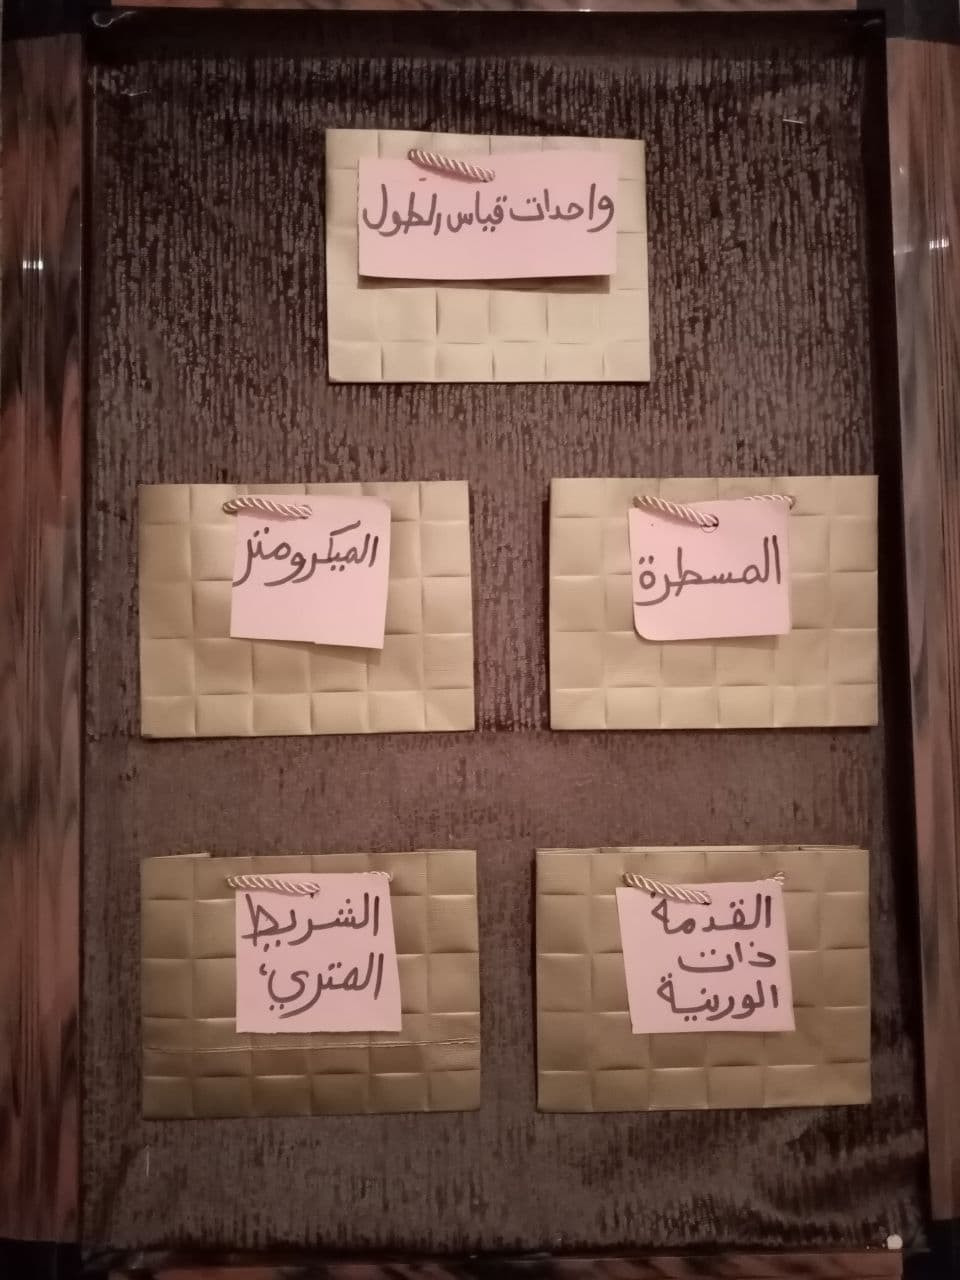 واحدات قياس الطول
المسطرة
الميكرومتر
القدمة
ذات
الورنية
الشريط
المتري